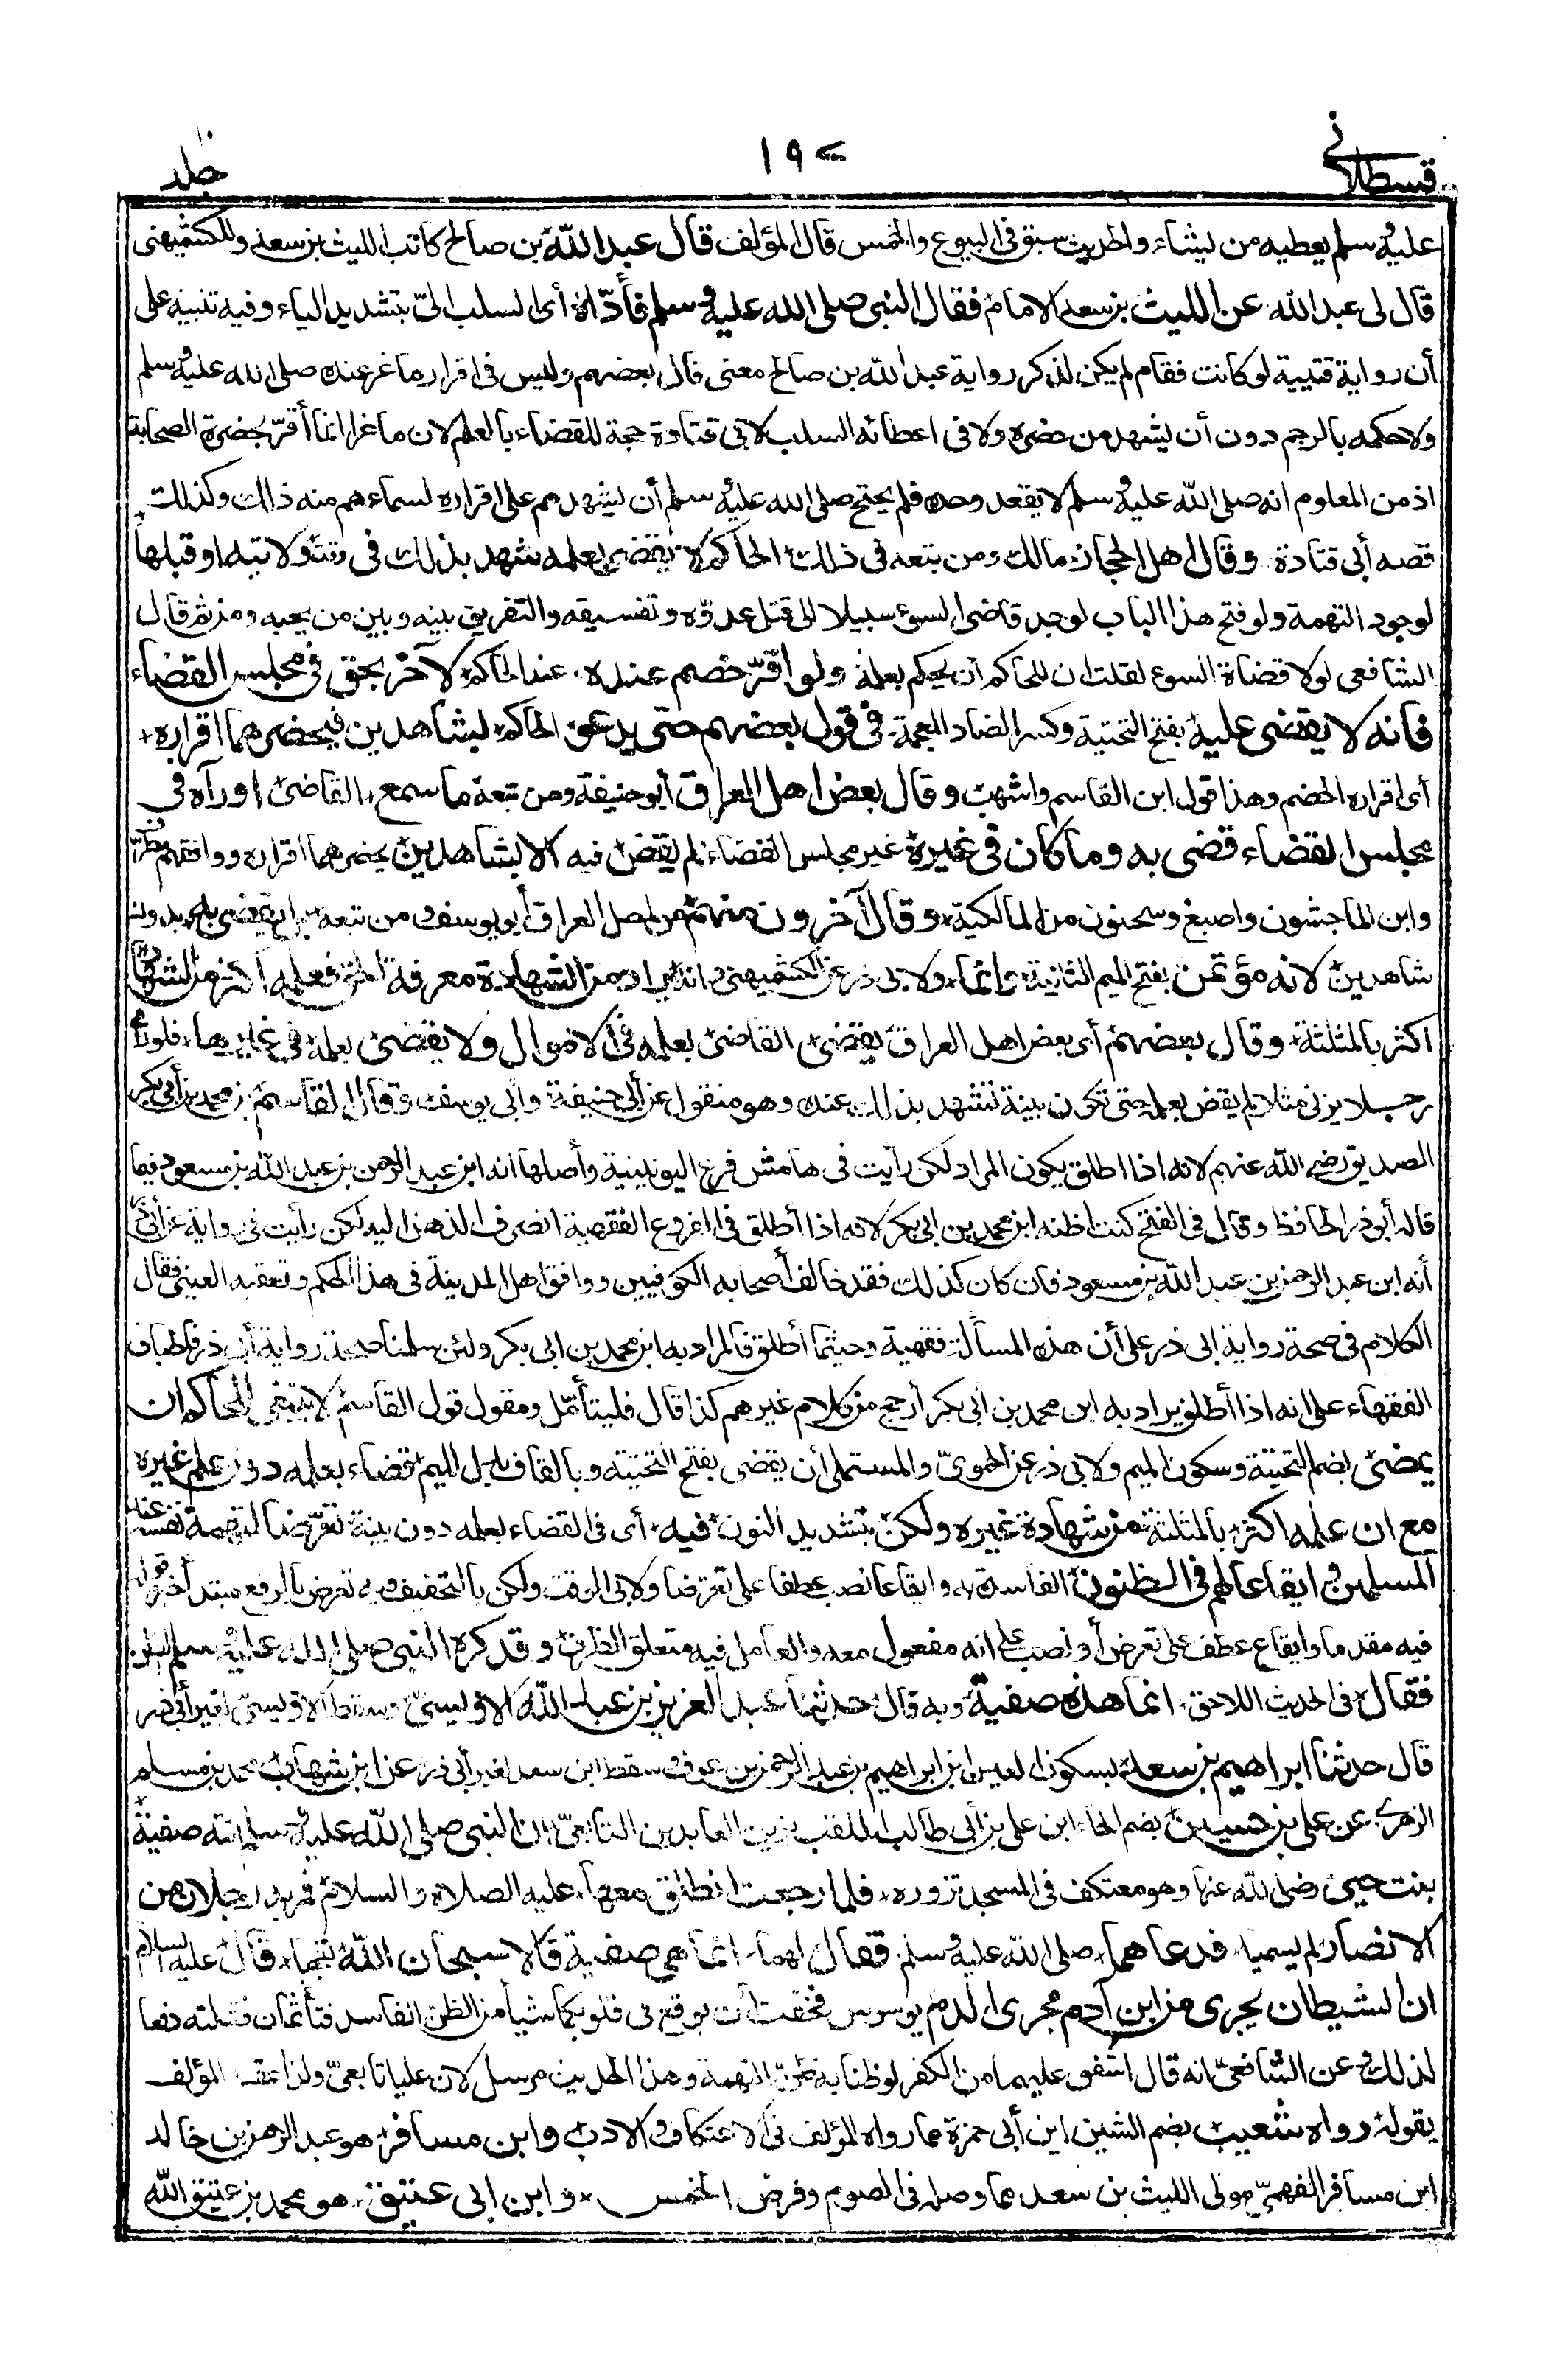 قسطلاني
١٩٢
جلد
عليه وسلم يعطيه من يشاء والحديث سبق في البيوع والخمس قال المؤلف قال عبد الله بن صالح كاتب الليث بن سعد وللكشميهني
قال لي عبد الله عن الليث بن سعد الامام فقال النبي صلى الله عليه وسلم فأدّاه أي السلب اليّ بتشديد الياء وفيه تنبيه على
أن رواية قتيبة لو كانت فقام لم يكن لذكر رواية عبد الله بن صالح معنى قال بعضهم وليس في اقرار ماعز عنده صلى الله عليه وسلم
ولا حكمه بالرجم دون أن يشهد من حضره ولا في اعطائه السلب لابي قتادة حجة للقضاء بالعلم لان ماعزا انما أقرّ بحضرة الصحابة
اذ من المعلوم انه صلى الله عليه وسلم لا يقعد وحده فلم يحتج صلى الله عليه وسلم أن يشهدهم على اقراره لسماعهم منه ذلك وكذلك
قصة أبي قتادة وقال اهل الحجاز مالك ومن تبعه في ذلك الحاكم لا يقضي بعلمه شهد بذلك في وقت ولايته او قبلها
لوجود التهمة ولو فتح هذا الباب لوجد قاضي السوء سبيلا الى قتل عدوّه وتفسيقه والتفريق بينه وبين من يحبه ومن ثم قال
الشافعي لولا قضاة السوء لقلت ان للحاكم أن يحكم بعلمه ولو اقرّ خصم عنده عند الحاكم لآخر بحق في مجلس القضاء
فانه لا يقضي عليه بفتح التحتية وكسر الضاد المعجمة في قول بعضهم حتى يدعو الحاكم بشاهدين فيحضرهما اقراره
أي اقرار الخصم وهذا قول ابن القاسم واشهب وقال بعض اهل العراق أبو حنيفة ومن تبعه ما سمع القاضي او رآه في
مجلس القضاء قضى به وما كان في غيره غير مجلس القضاء لم يقض فيه الا بشاهدين يحضرهما اقراره ووافقهم مطرّف
وابن الماجشون واصبغ وسحنون من المالكية وقال آخرون منهم من اهل العراق أبو يوسف ومن تبعه بل يقضي به بدون
شاهدين لانه مؤتمن بفتح الميم الثانية وانما ولابي ذر عن الكشميهني وانه يراد من الشهادة معرفة الحق فعلمه اكثر من الشهادة
اكثر بالمثلثة وقال بعضهم أي بعض اهل العراق يقضي القاضي بعلمه في الاموال ولا يقضي بعلمه في غيرها فلو رأى
رجلا يزني مثلا لم يقض بعلمه حتى تكون بينة تشهد بذلك عنده وهو منقول عن أبي حنيفة وأبي يوسف وقال القاسم بن محمد بن أبي بكر
الصديق رضي الله عنهم لانه اذا اطلق يكون المراد لكن رأيت في هامش فرع اليونينية وأصلها انه ابن عبد الرحمن بن عبد الله بن مسعود فيما
قاله أبو ذر الحافظ وقال في الفتح كنت اظنه ابن محمد بن ابي بكر لانه اذا أطلق في الفروع الفقهية انصرف الذهن اليه لكن رأيت في رواية عن أبي ذر
أنه ابن عبد الرحمن بن عبد الله بن مسعود فان كان كذلك فقد خالف أصحابه الكوفيين ووافق اهل المدينة في هذا الحكم وتعقبه العيني فقال
الكلام في صحة رواية ابي ذر على أن هذه المسألة فقهية وحيثما أطلق فالمراد به ابن محمد بن ابي بكر ولئن سلمنا صحة رواية أبي ذر فاطباق
الفقهاء على انه اذا أطلق يراد به ابن محمد بن أبي بكر أرجح من كلام غيرهم كذا قال فليتأمّل ومقول قول القاسم لا ينبغي للحاكم ان
يمضي بضم التحتية وسكون الميم ولابي ذر عن الحمويّ والمستملي أن يقضي بفتح التحتية وبالقاف بدل الميم قضاء بعلمه دون علم غيره
مع ان علمه اكثر بالمثلثة من شهادة غيره ولكنّ بتشديد النون فيه أي في القضاء بعلمه دون بينة تعرّضا لتهمة نفسه عند
المسلمين وايقاعا لهم في الظنون الفاسدة وايقاعا نصب عطفا على تعرّضا ولابي الوقت ولكن بالتخفيف فيه تعرض بالرفع مبتدأ خبره قوله
فيه مقدما وايقاع عطف على تعرض أو نصب على انه مفعول معه والعامل فيه متعلق الظرف وقد كره النبي صلى الله عليه وسلم الظن
فقال في الحديث اللاحق انما هذه صفية وبه قال حدثنا عبد العزيز بن عبد الله الاويسيّ وسقط الاويسيّ لغير أبي ذر
قال حدثنا ابراهيم بن سعد بسكون العين ابن ابراهيم بن عبد الرحمن بن عوف وسقط ابن سعد لغير أبي ذر عن ابن شهاب محمد بن مسلم
الزهري عن علي بن حسين بضم الحاء ابن علي بن أبي طالب الملقب بزين العابدين التابعيّ ان النبي صلى الله عليه وسلم اتته صفية
بنت حيي رضي الله عنها وهو معتكف في المسجد تزوره فلما رجعت انطلق معها عليه الصلاة والسلام فمر به رجلان من
الانصار لم يسميا فدعاهما صلى الله عليه وسلم فقال لهما انما هي صفية قالا سبحان الله تعجبا قال عليه السلام
ان الشيطان يجري من ابن آدم مجرى الدم يوسوس فخفت أن يوقع في قلوبكما شيأ من الظن الفاسد فتأثمان فقلته دفعا
لذلك وعن الشافعيّ انه قال اشفق عليهما من الكفر لو ظنا به ظنّ التهمة وهذا الحديث مرسل لان عليا تابعيّ ولذا عقبه المؤلف
بقوله رواه شعيب بضم الشين ابن أبي حمزة مما رواه المؤلف في الاعتكاف والادب وابن مسافر هو عبد الرحمن بن خالد
ابن مسافر الفهميّ مولى الليث بن سعد مما وصله في الصوم وفرض الخمس وابن ابي عتيق هو محمد بن عتيق الله